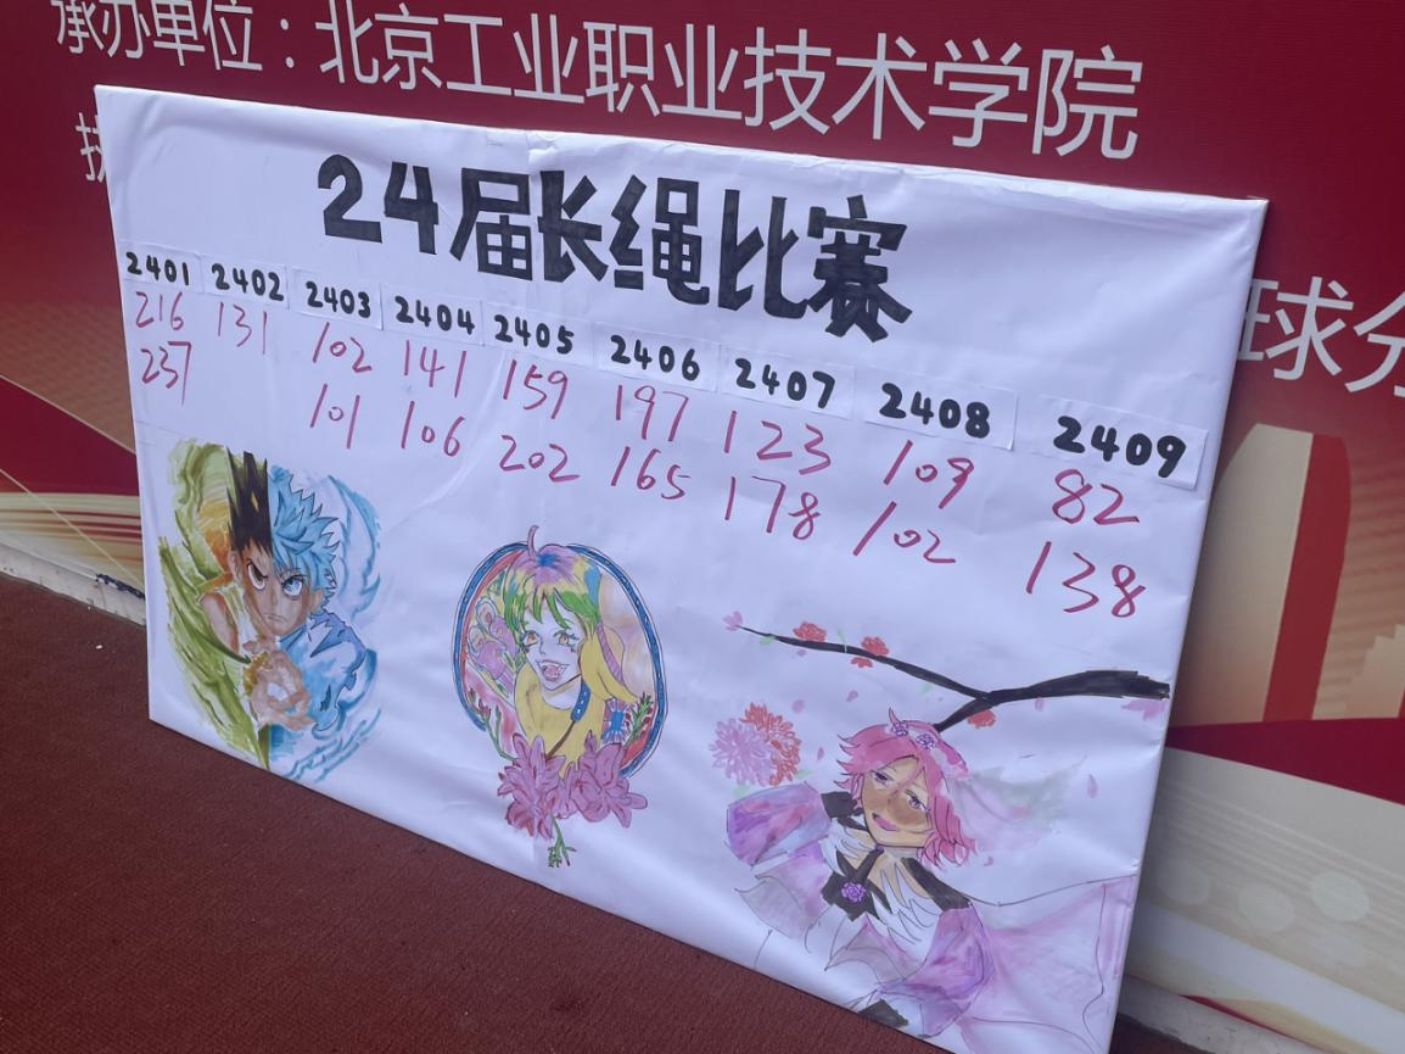 承办单位：北京工业职业技术学院
24届长绳比赛
2401 2402 2403 2404 2405 2406 2407 2408 2409
216 131 102 141 159 197 123 109 82
237 101 106 202 165 178 102 138
球分